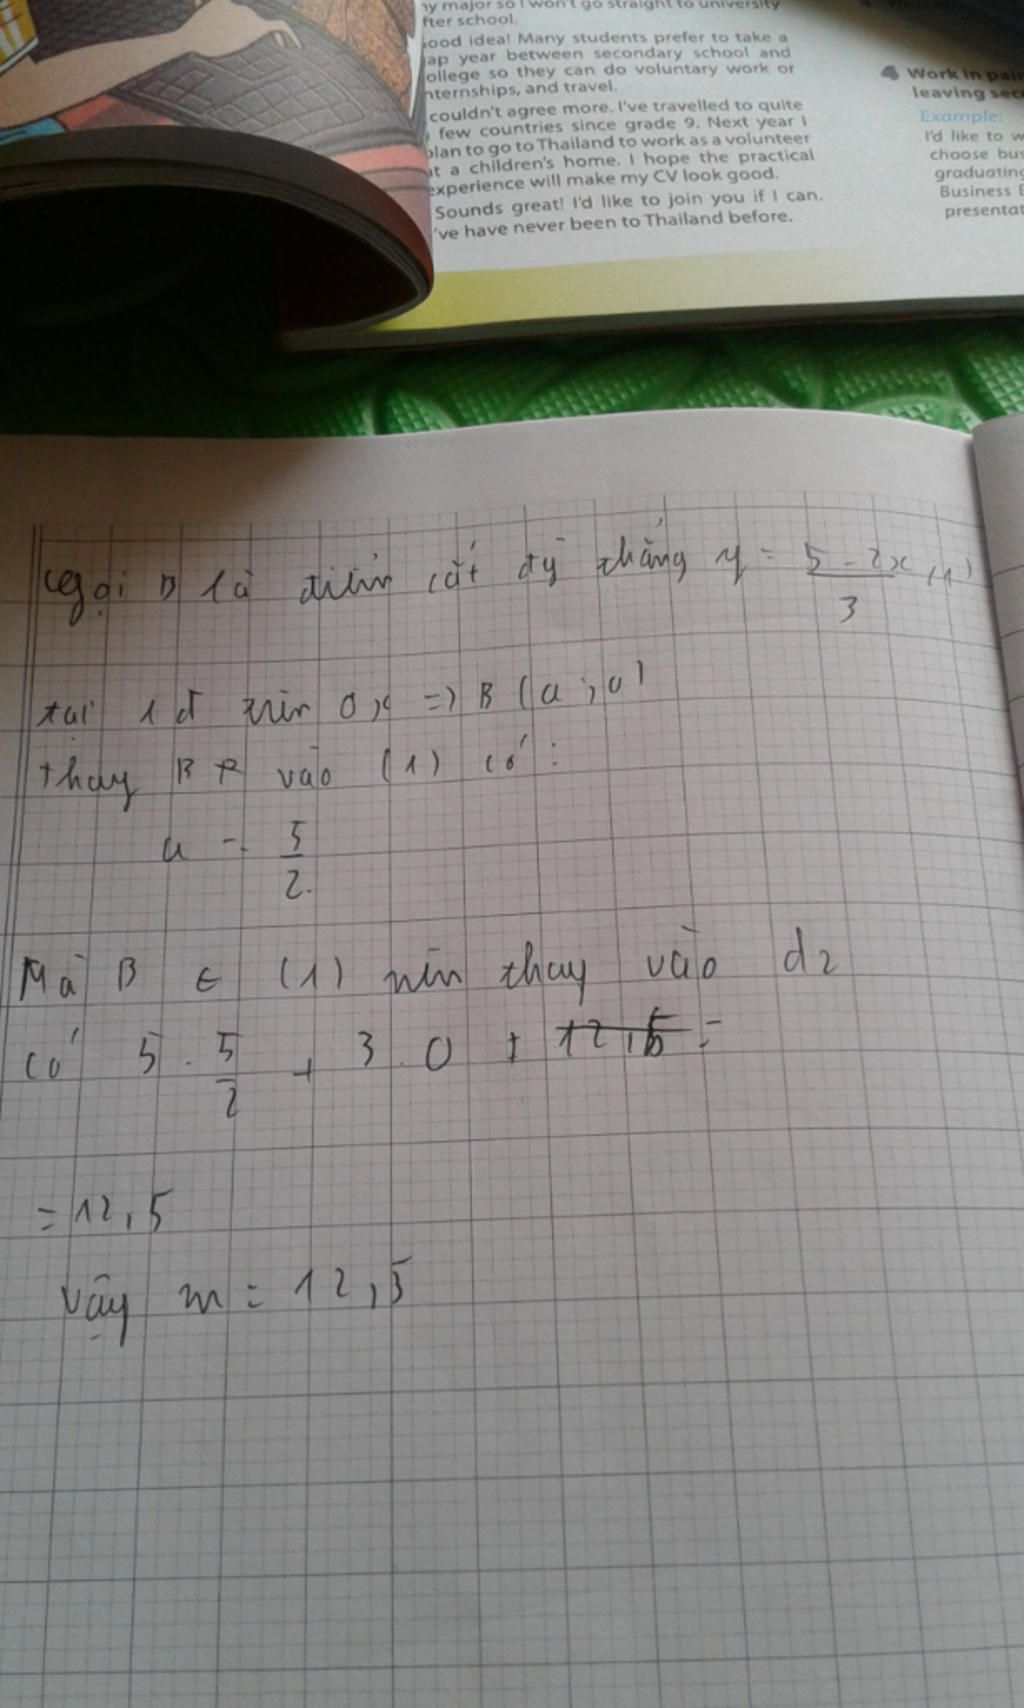 my major so I won't go straight to university
fter school.
ood idea! Many students prefer to take a
ap year between secondary school and
ollege so they can do voluntary work or
nternships, and travel.
couldn't agree more. I've travelled to quite
few countries since grade 9. Next year I
plan to go to Thailand to work as a volunteer
at a children's home. I hope the practical
experience will make my CV look good.
Sounds great! I'd like to join you if I can.
've have never been to Thailand before.
4 Work in pai
leaving sec
Example:
I'd like to w
choose bus
graduating
Business E
presentat
Gọi B là điểm cắt đg thẳng y = 5 - 2x / 3 (1)
tại 1 đ trên Ox => B (a; 0)
thay B vào (1) có:
a = 5/2.
Mà B ∈ (1) nên thay vào d2
có 5. 5/2 + 3.0 + 12,5 =
= 12,5
Vậy m = 12,5